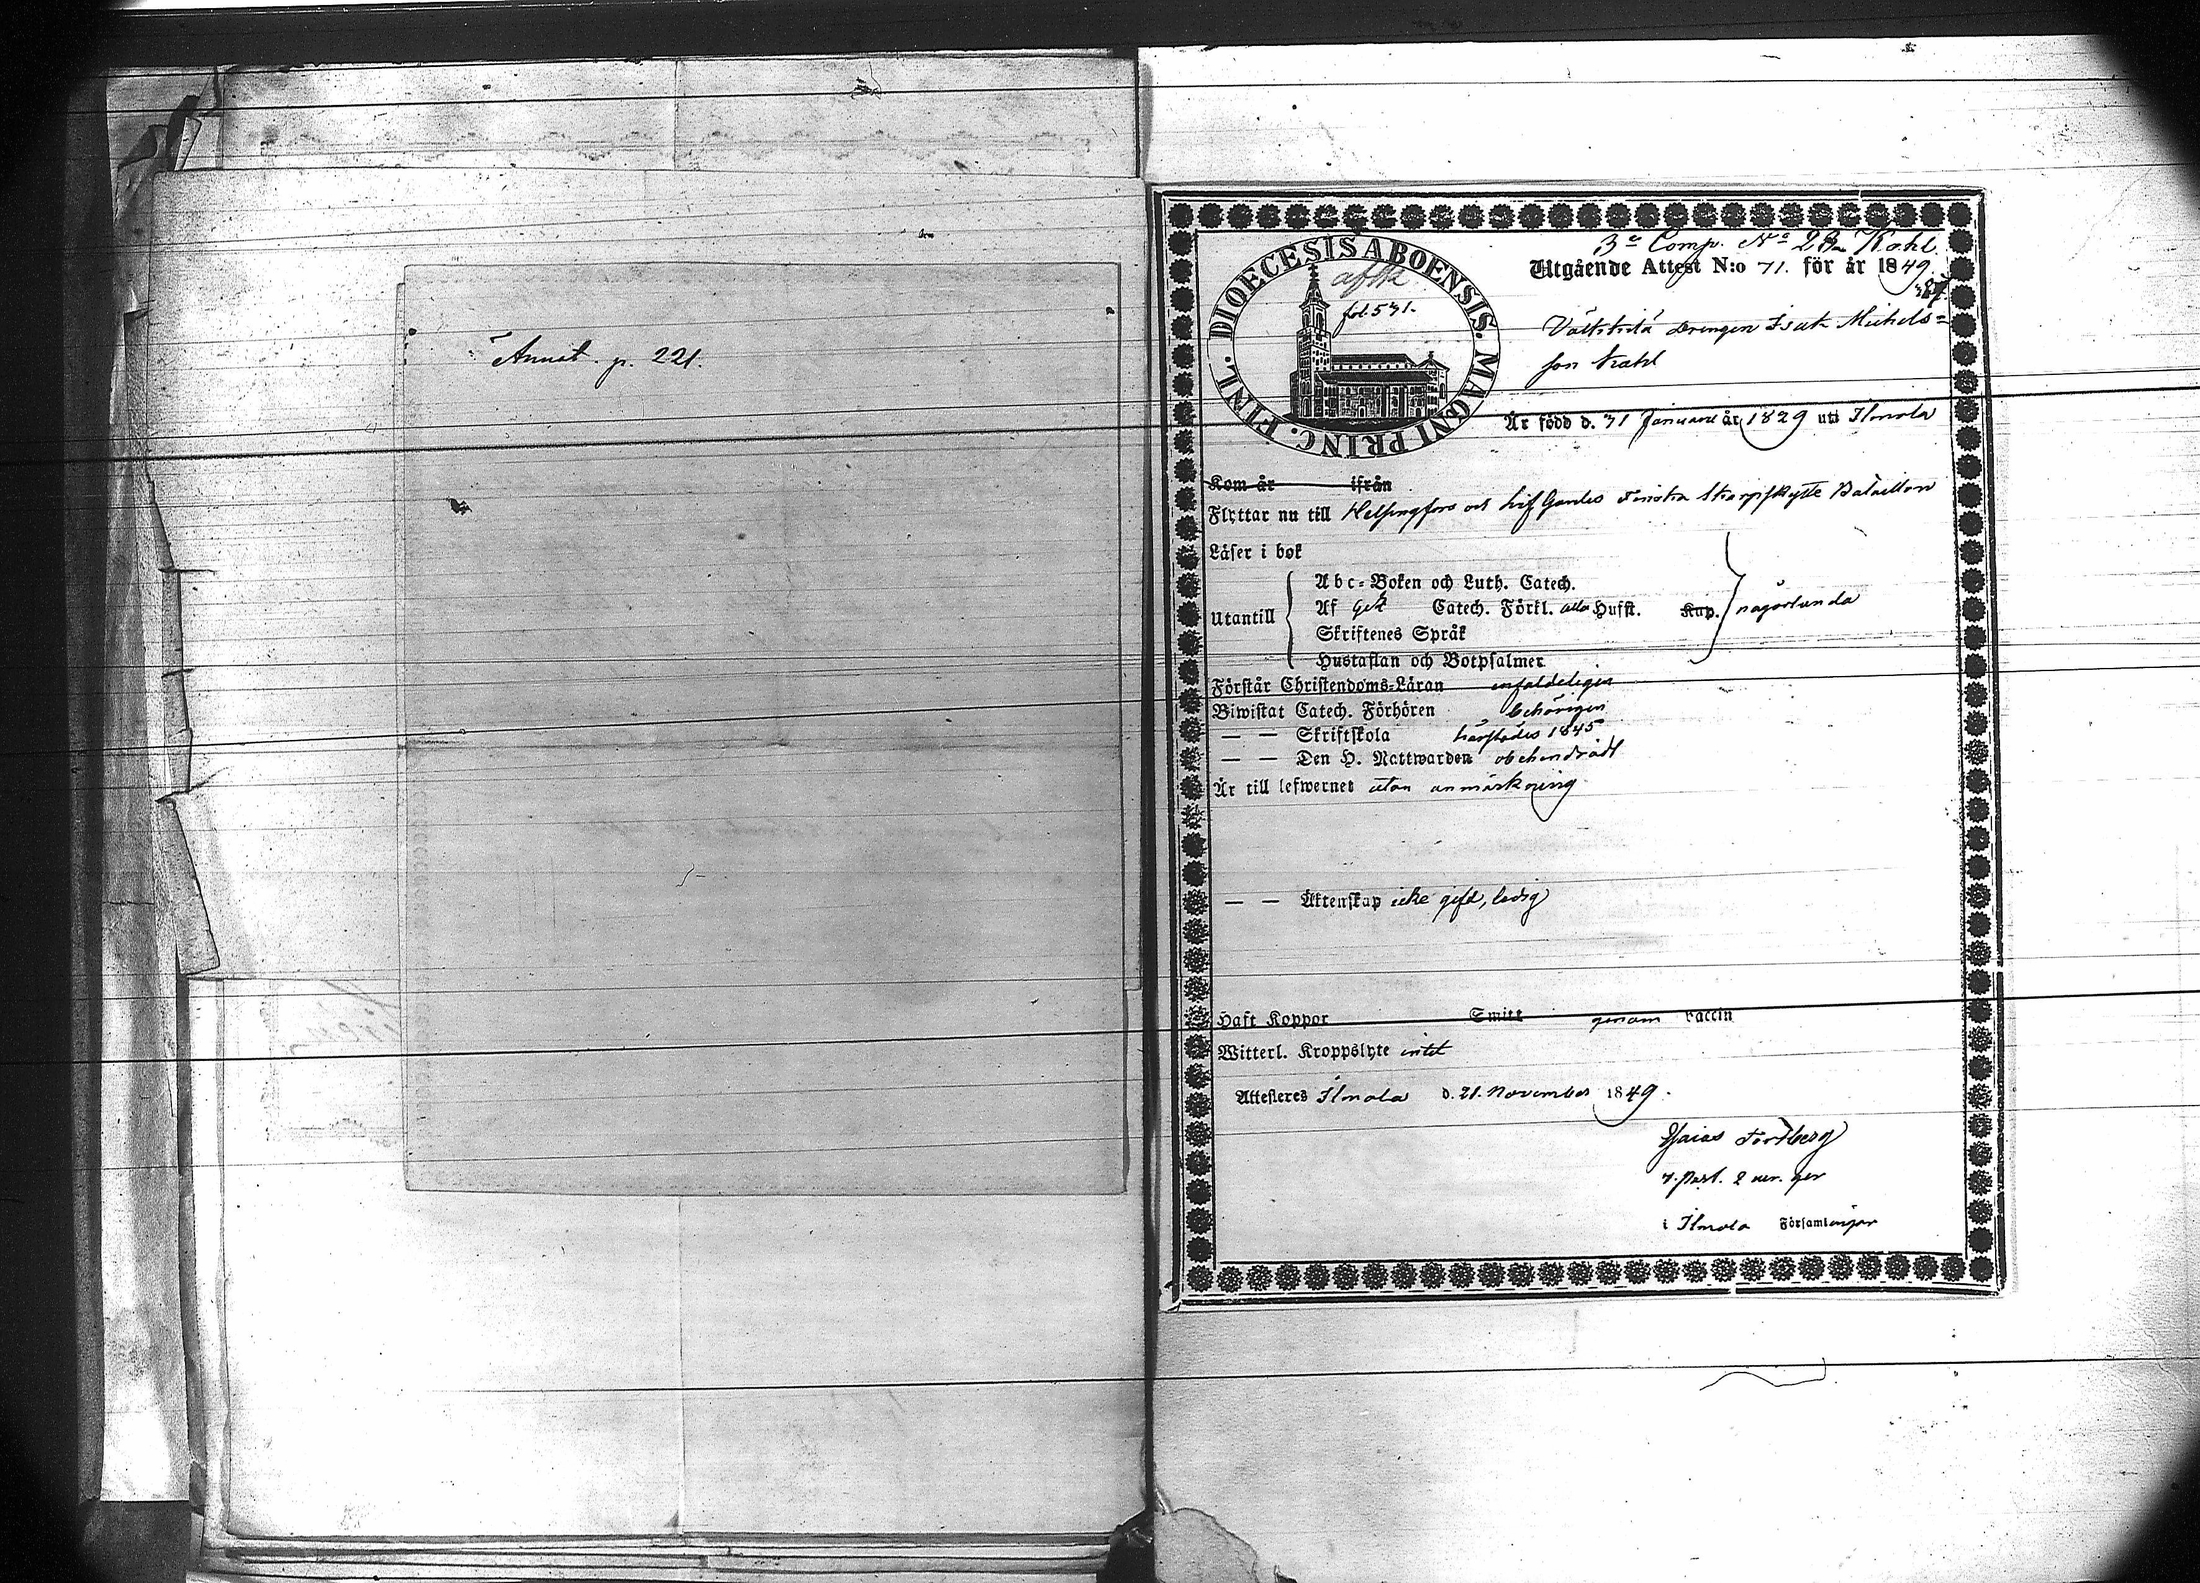 Annot. p. 221.
3e Comp. No 28 Kahl
Utgående Attest N:o 71. för år 1849.
DIOECESIS ABOENSIS. MAGNI PRINC. FINL.
fol. 531.
Drengen Isak Michels=
son Kahl
Är född d. 31 Januari år 1829 uti Ilmola
Kom år ifrån
Flyttar nu till Helsingfors och Lif Gardes Finska Skarpskytte Bataillon
Läser i bok
Abc-Boken och Luth. Catech.
Utantill
Af Catech. Förkl. alla Husst. Kap. någorlunda
Skriftenes Språk
Hustaflan och Botpsalmer
Förstår Christendoms-Läran enfaldeligen
Biwistat Catech. Förhören behörigen
— — Skriftskola härstädes 1845
— — Den H. Nattwarden obehindradt
Är till lefwernet utan anmärkning
— — Äktenskap icke gift, ledig
Haft Koppor Smitt genom vaccin
Witterl. Kroppslyte intet
Attesteras Ilmola d. 21. November 1849.
Esaias
i Ilmola Församlingar